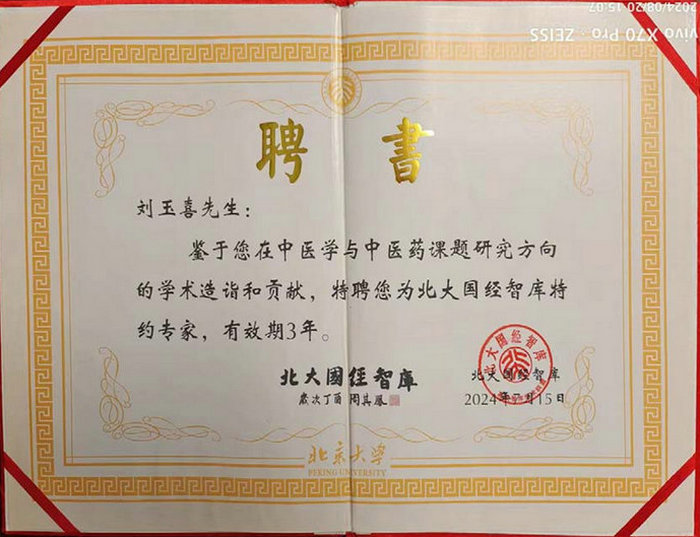 2024/08/20 15:07
vivo X70 Pro · ZEISS
聘書
刘玉喜先生：
鉴于您在中医学与中医药课题研究方向
的学术造诣和贡献，特聘您为北大国经智库特
约专家，有效期3年。
北大國經智库
歲次丁酉 周其鳳
北大国经智库
北大国经智库
2024年 月15日
北京大学
PEKING UNIVERSITY